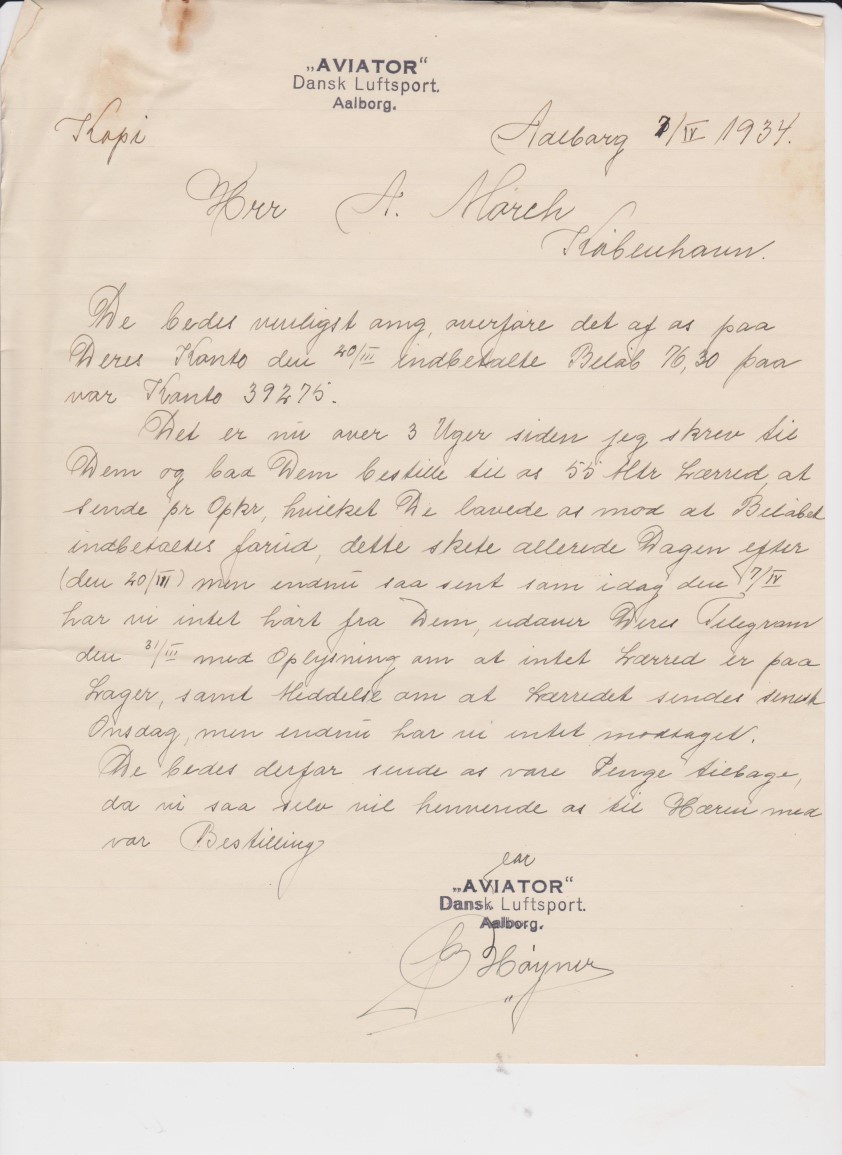 „AVIATOR“
Dansk Luftsport.
Aalborg.
Kopi
Aalborg 7/IV 1934.
Hrr A. Mörch
København.
De bedes venligst omg, overføre det af os paa
Deres Konto den 20/III indbetalte Beløb 76,30 paa
vor Konto 39275.
Det er nu over 3 Uger siden jeg skrev til
Dem og bad Dem bestille til os 55 Mtr Lærred, at
sende pr Opkr, hvilket De lovede os mod at Beløbet
indbetaltes forud, dette skete allerede Dagen efter
(den 20/III) men endnu saa sent som idag den 7/IV
har vi intet hørt fra Dem, udover Deres Telegram
den 31/III med Oplysning om at intet Lærred er paa
Lager, samt Meddelse om at Lærredet sendes senest
Onsdag, men endnu har vi intet modtaget.
De bedes derfor sende os vore Penge tilbage,
da vi saa selv vil henvende os til Hæren med
vor Bestilling
for
„AVIATOR“
Dansk Luftsport.
Aalborg.
Høyner